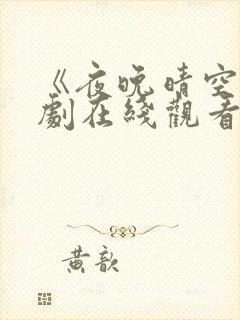 《夜晚晴空
劇在綫觀看
黄歆